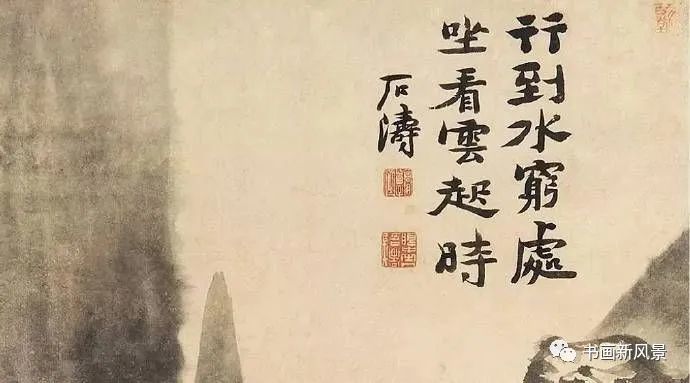 行到水窮處
坐看雲起時
石濤
书画新风景